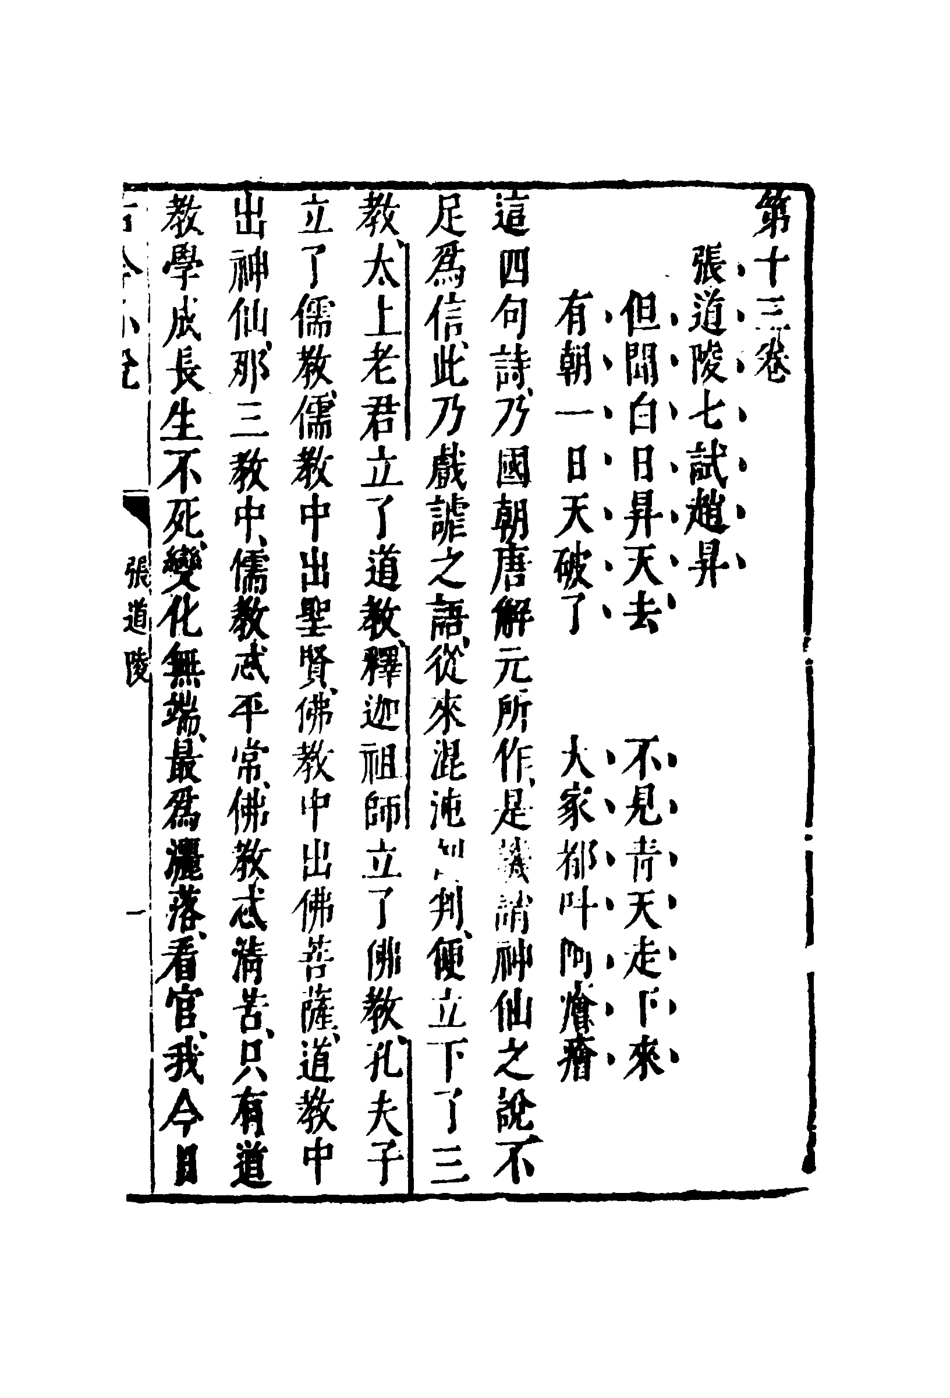 第十三卷
張道陵七試趙昇
但聞白日昇天去　不見青天走下來
有朝一日天破了　大家都叫阿癐癐
這四句詩、乃國朝唐解元所作、是譏誚神仙之說、不
足爲信、此乃戲謔之語、從來混沌判、便立下了三
教、太上老君立了道教、釋迦祖師立了佛教、孔夫子
立了儒教、儒教中出聖賢、佛教中出佛菩薩、道教中
出神仙、那三教中、儒教忒平常、佛教忒清苦、只有道
教學成長生不死、變化無端、最爲灑落、看官、我今日
古今小說　張道陵　一